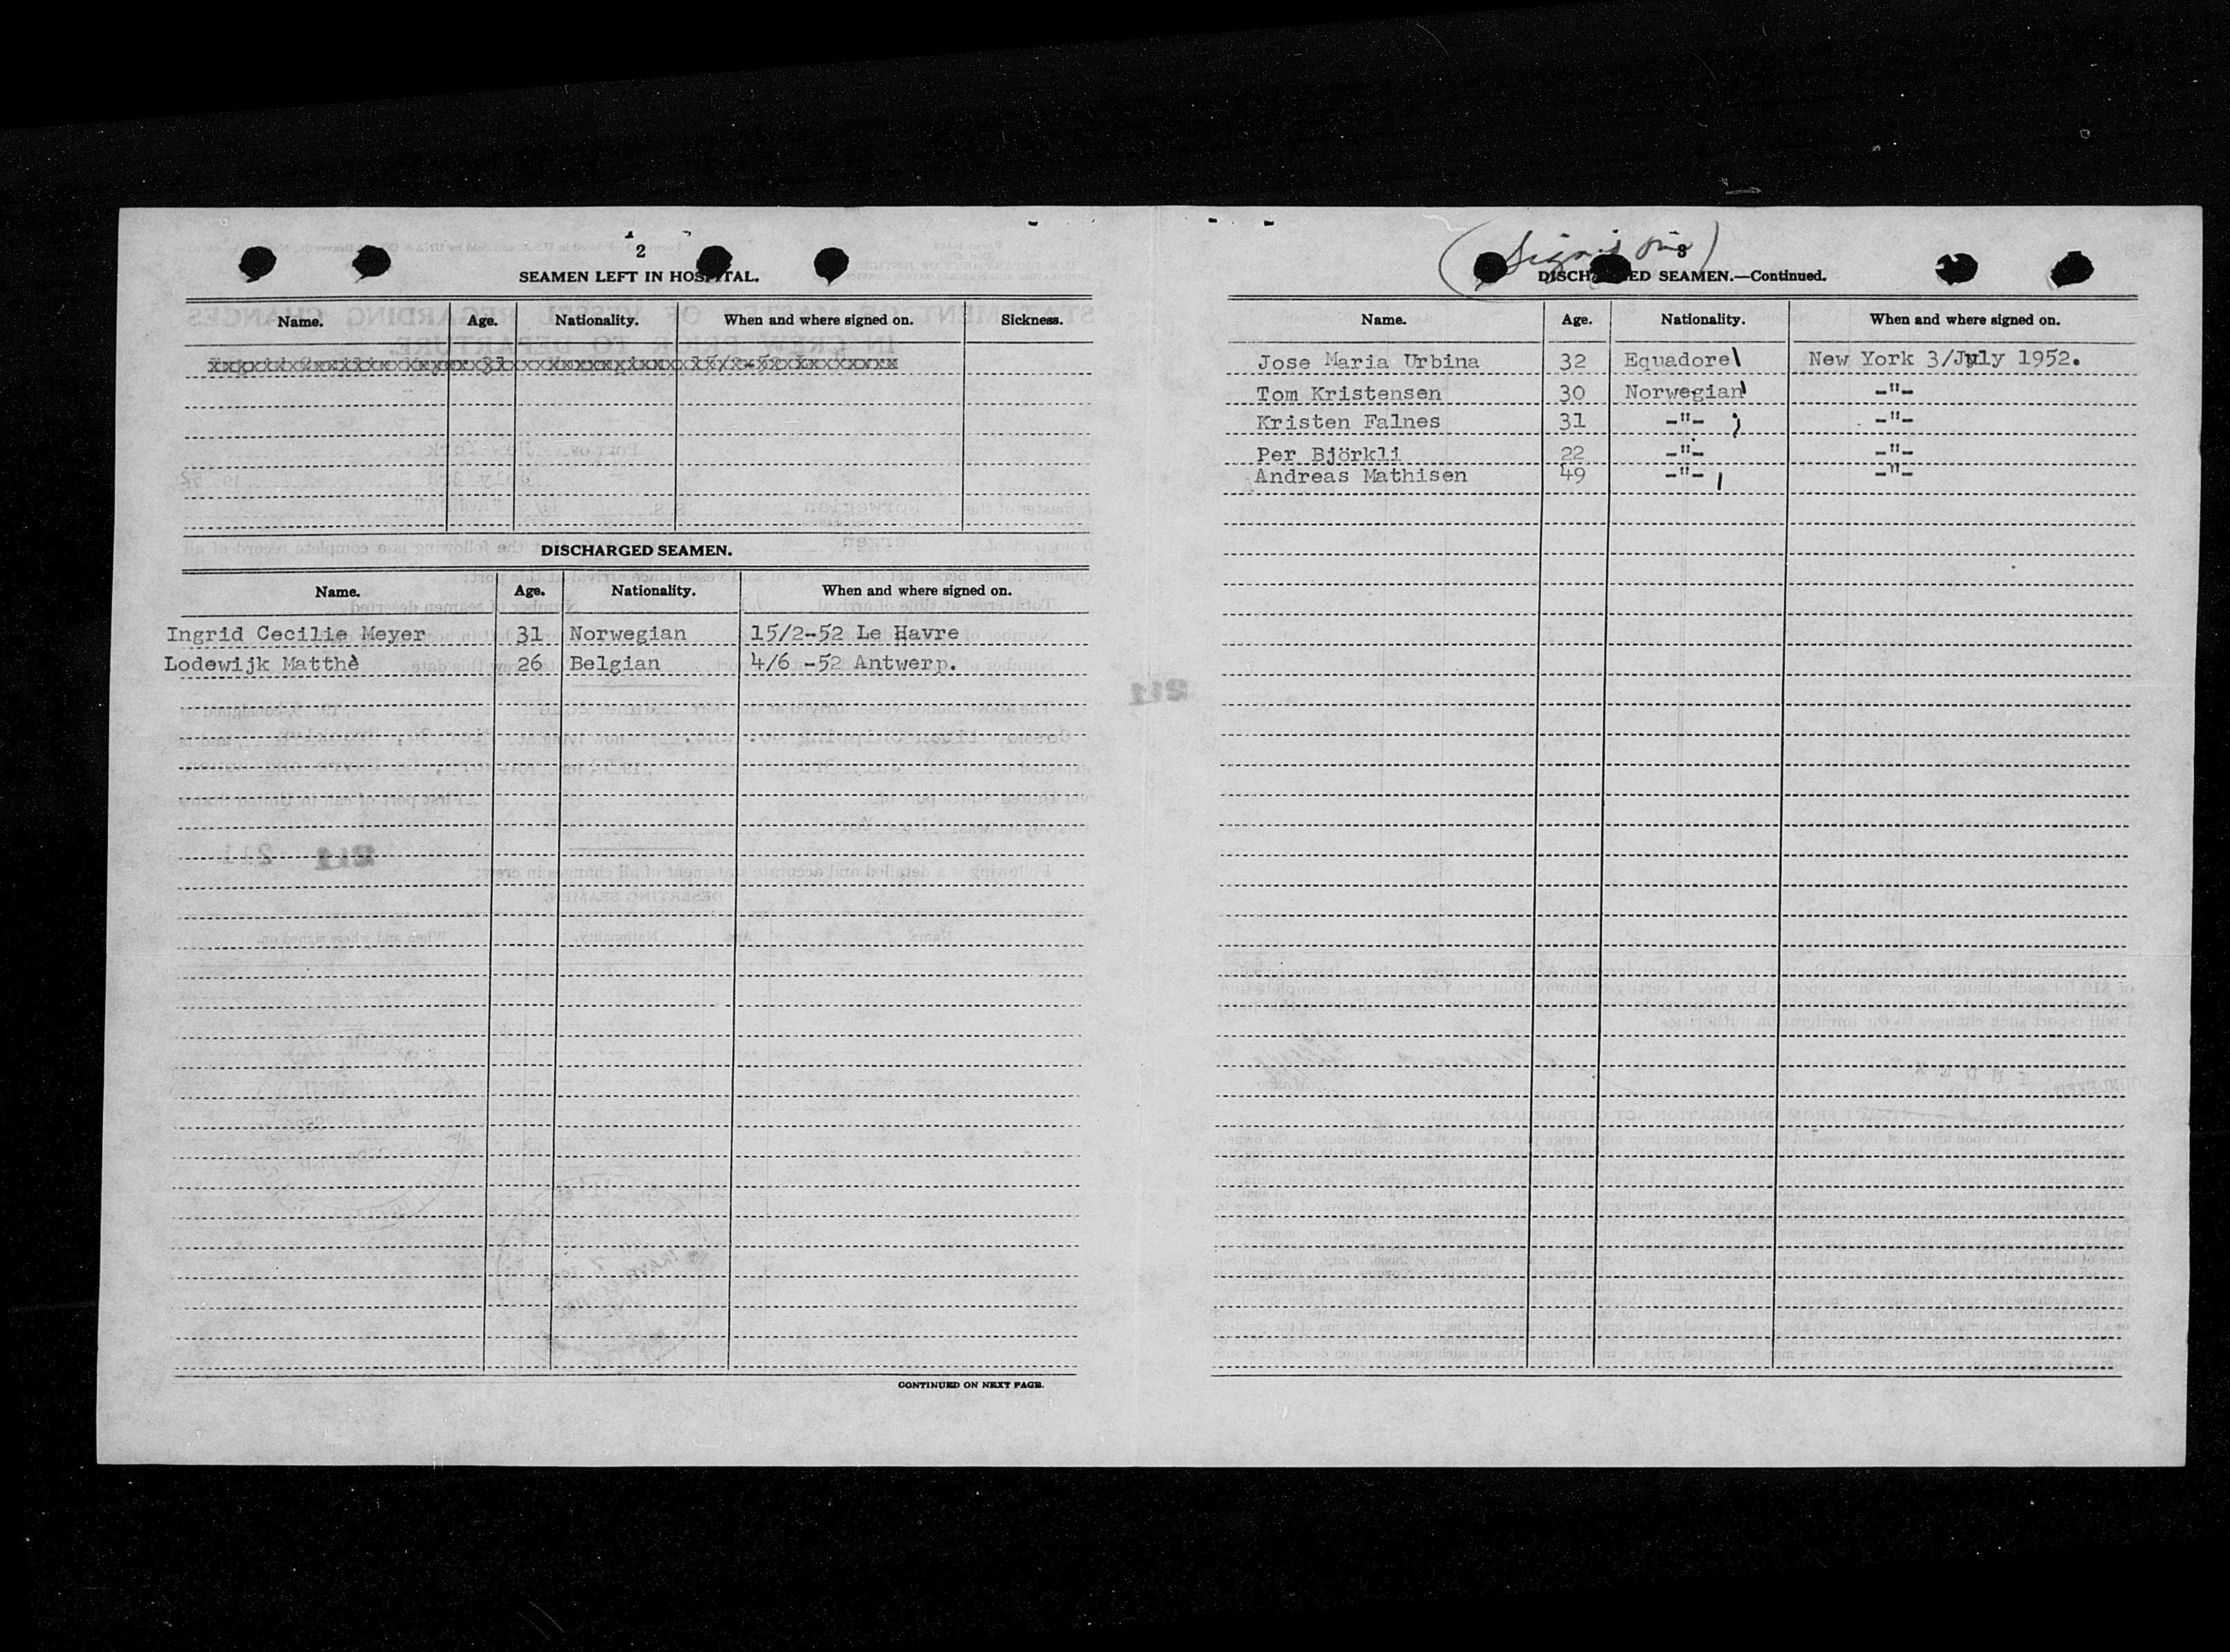 2
SEAMEN LEFT IN HOSPITAL.
Name. Age. Nationality. When and where signed on. Sickness.
DISCHARGED SEAMEN.
Name. Age. Nationality. When and where signed on.
Ingrid Cecilie Meyer 31 Norwegian 15/2-52 Le Havre
Lodewijk Matthè 26 Belgian 4/6 -52 Antwerp.
CONTINUED ON NEXT PAGE.
3
DISCHARGED SEAMEN.—Continued.
Name. Age. Nationality. When and where signed on.
Jose Maria Urbina 32 Equadore New York 3/July 1952.
Tom Kristensen 30 Norwegian -"-
Kristen Falnes 31 -"- -"-
Per Björkli 22 -"- -"-
Andreas Mathisen 49 -"- -"-